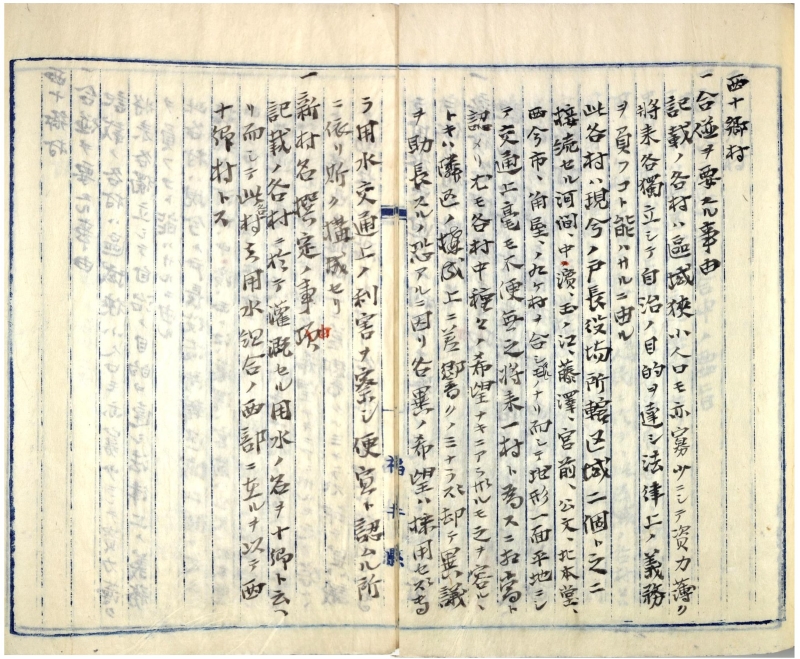 西十郷村
一合併ヲ要スル事由
記載ノ各村ハ區域狭小人口モ亦寡少ニシテ資力薄ク
将来各獨立シテ自治ノ目的ヲ達シ法律上ノ義務
ヲ負フコト能ハサルニ由ル
此各村ハ現今ノ戸長役場所轄区域二個ト之ニ
接続セル河間、中、濱、玉ノ江、藤澤、宮前、公文、北本堂、
西今市、角屋、ノ九ケ村ヲ合シタルモノナリ而シテ地形一面平地ニシ
テ交通上毫モ不便無之将来一村ト為スニ相当ト
認メリ尤モ各村中種々ノ希望ナキニアラサルモ之ヲ容ルヽ
トキハ隣区ノ撰定上ニ差響クノミナラス却テ異議
ヲ助長スルノ恐アルニ因リ各異ノ希望ハ採用セス専
ラ用水交通上ノ利害ヲ察シ便宜ト認ムル所
ニ依リ斯ク構成セリ
一新村名撰定ノ事由
記載ノ各村ニ於テ灌漑セル用水ノ名ヲ十郷ト云ヽ
リ而シテ此村ハ用水組合ノ西部ニ在ルヲ以テ西
十郷村トス
福井縣